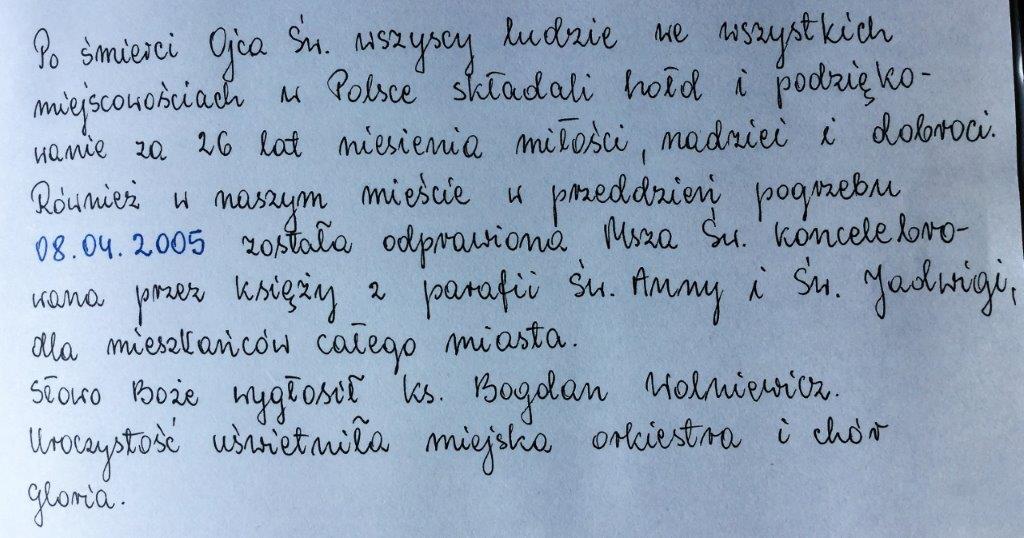 Po śmierci Ojca Św. wszyscy ludzie we wszystkich
miejscowościach w Polsce składali hołd i podzięko-
wanie za 26 lat niesienia miłości, nadziei i dobroci.
Również w naszym mieście w przeddzień pogrzebu
08.04.2005 została odprawiona Msza Św. koncelebro-
wana przez księży z parafii Św. Anny i Św. Jadwigi,
dla mieszkańców całego miasta.
Słowo Boże wygłosił ks. Bogdan Wolniewicz.
Uroczystość uświetniła miejska orkiestra i chór
Gloria.